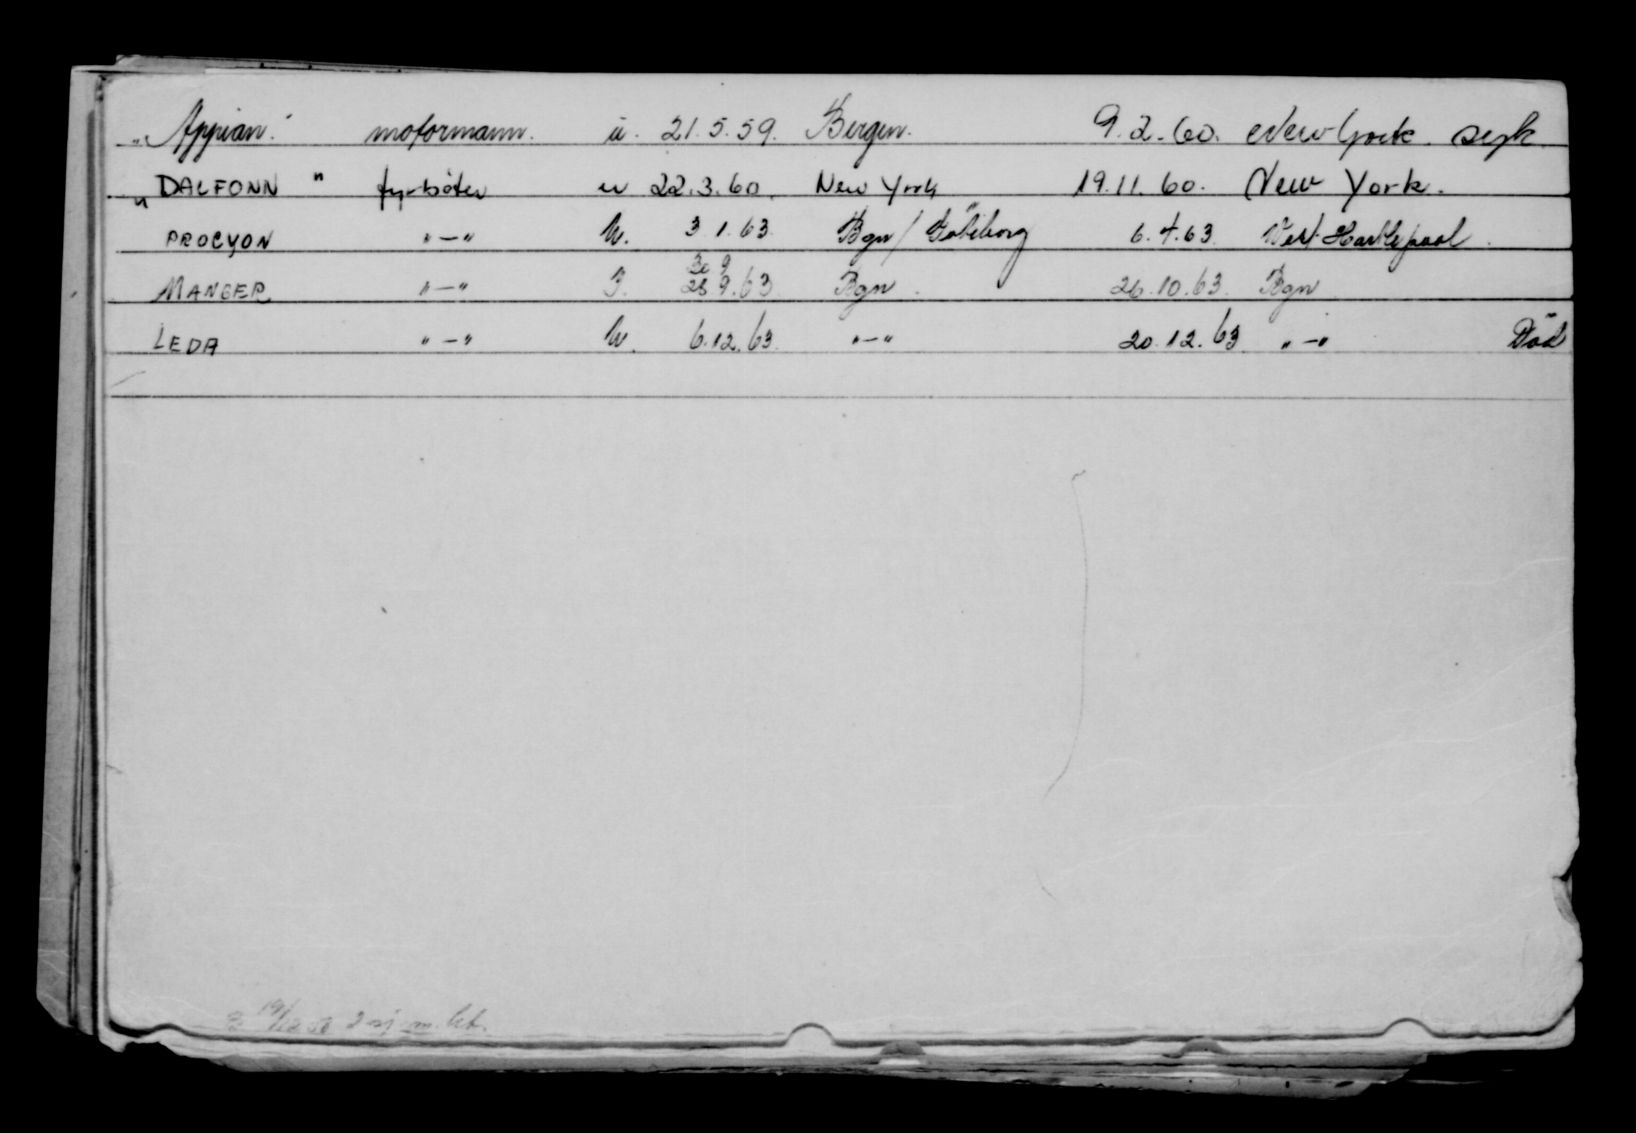 "Appian" motormann. u. 21.5.59. Bergen. 9.2.60. New York. syk
"DALFONN" fyrbøter u 22.3.60. New York 19.11.60. New York.
PROCYON "-" U. 3.1.63 Bgn/Göteborg 6.4.63. West Hartlepool.
30 9
MANGER "-" I. 28 9.63 Bgn. 26.10.63. Bgn
LEDA "-" U. 6.12.63 "-" 20.12.63 "-" Död